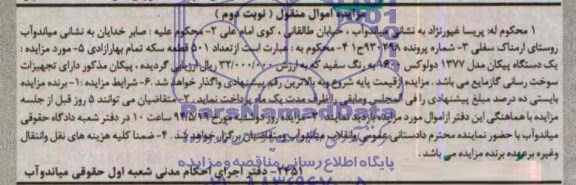 مزایده اموال منقول ( نوبت دوم )
۱ محکوم له: پریسا غیورنژاد به نشانی میاندوآب ، خیابان طالقانی ، کوی امام علی ۲- محکوم علیه : صابر خدایان به نشانی میاندوآب
روستای آرمناک سفلی ۳- شماره پرونده ۹۳۰۲۹۸ح۱ ۴- محکوم به : عبارت است ازتعداد ۵۰۱ قطعه سکه تمام بهارازادی ۵- مورد مزایده :
یک دستگاه پیکان مدل ۱۳۷۷ دولوکس ۱۶۰۰ به رنگ سفید که به ارزش ۳۲/۰۰۰/۰۰۰ ریال ارزیابی گردیده ، پیکان مذکور دارای تجهیزات
سوخت رسانی گازمایع می باشد . مزایده ازقیمت پایه شروع وبه بالاترین رقم پیشنهادی واگذار خواهد شد .۶- شرایط مزایده :۱- برنده مزایده
بایستی ده درصد مبلغ پیشنهادی را فی المجلس ومابقی را ظرف مدت یک ماه پرداخت نماید. ۲- متقاضیان می توانند ۵ روز قبل از جلسه
مزایده با هماهنگی این دفتر ازاموال مورد مزایده بازدید نمایند. ۳- مزایده روز دوشنبه مورخ ۹۴/۵/۱۹ ساعت ۱۰ در دفتر شعبه دادگاه حقوقی
میاندوآب با حضور نماینده محترم دادستانی عمومی وانقلاب میاندوآب ومتقاضیان برگزار خواهد شد. ۴- ضمنا کلیه هزینه های نقل وانتقال
وغیره برعهده برنده مزایده می باشد .
۲۴۵۱- دفتر اجرای احکام مدنی شعبه اول حقوقی میاندوآب
پایگاه اطلاع رسانی مناقصه و مزایده